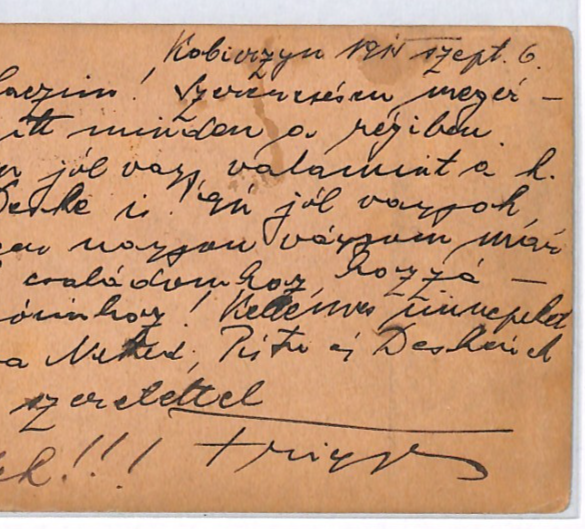 Kobierzyn 1915 szept. 6.
laczim! Szerencsésen megér-
itt minden a régiben
jól vagy, valamint a k.
Deske is. Én jól vagyok,
nagyon vágyom már
családomhoz, hozzá-
Kellemes ünnepeket
Neked, Pista és Deskének
szeretettel
!!!